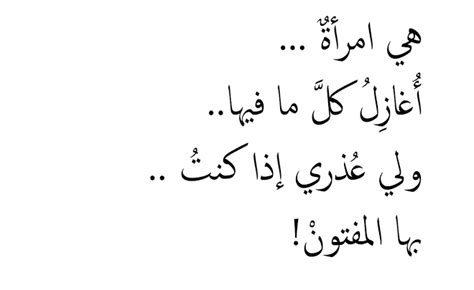 هي امرأةٌ ...
أُغازِلُ كلَّ ما فيها..
ولي عُذري إذا كنتُ ..
بها المفتونْ!